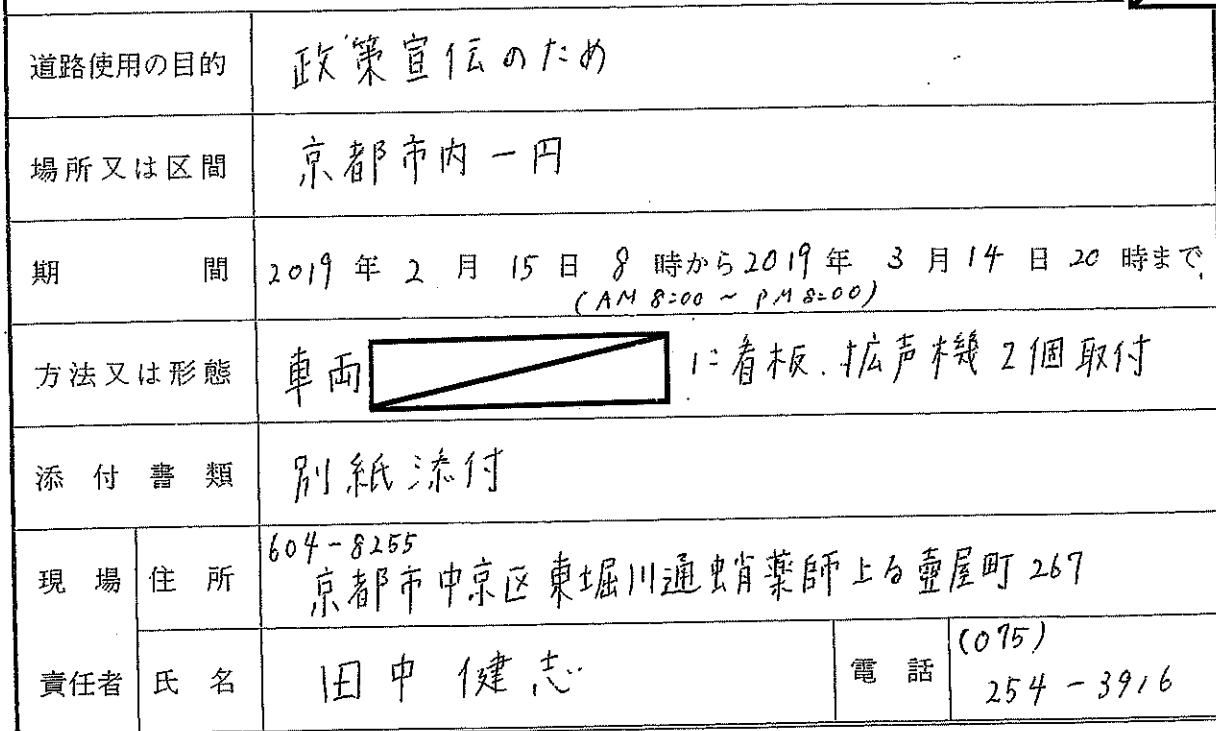 道路使用の目的 政策宣伝のため
場所又は区間 京都市内一円
期間 2019年2月15日8時から2019年3月14日20時まで
(AM 8:00 ~ PM 8:00)
方法又は形態 車両 に看板.拡声機2個取付
添付書類 別紙添付
604-8255
現場 住所 京都市中京区東堀川通蛸薬師上る壷屋町267
(075)
責任者 氏名 田中 健志 電話 254-3916